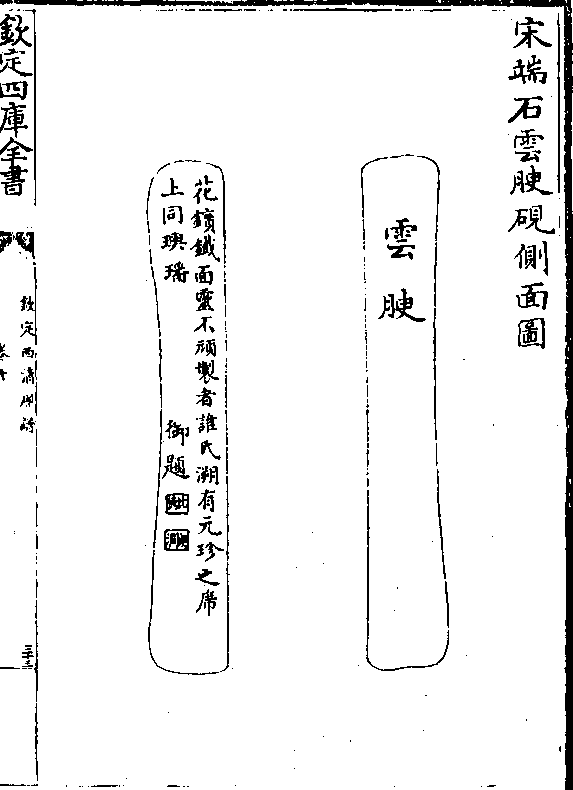 宋端石雲腴硯側面圖
雲腴
花鑌鐵面靈不頑製者誰氏溯有元珍之席
上同璵璠
御題
欽定四庫全書
欽定西清硯譜